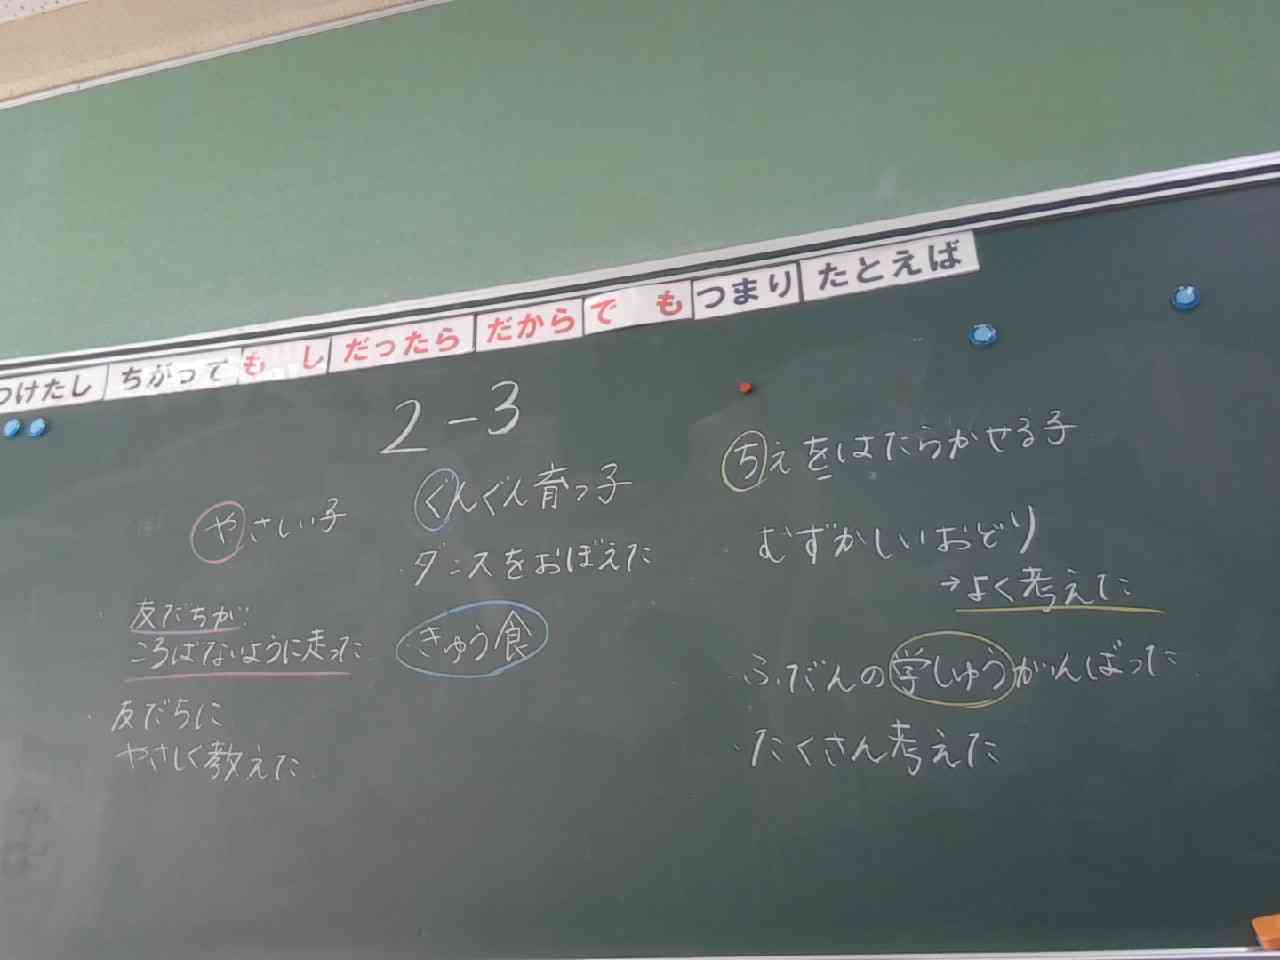 つけたし ちがって もし だったら だから でも つまり たとえば
2-3
やさしい子
友だちが
ころばないように走った
友だちに
やさしく教えた
ぐんぐん育つ子
・ダンスをおぼえた
・きゅう食
ちえをはたらかせる子
・むずかしいおどり
→よく考えた
・ふだんの学しゅうがんばった
・たくさん考えた